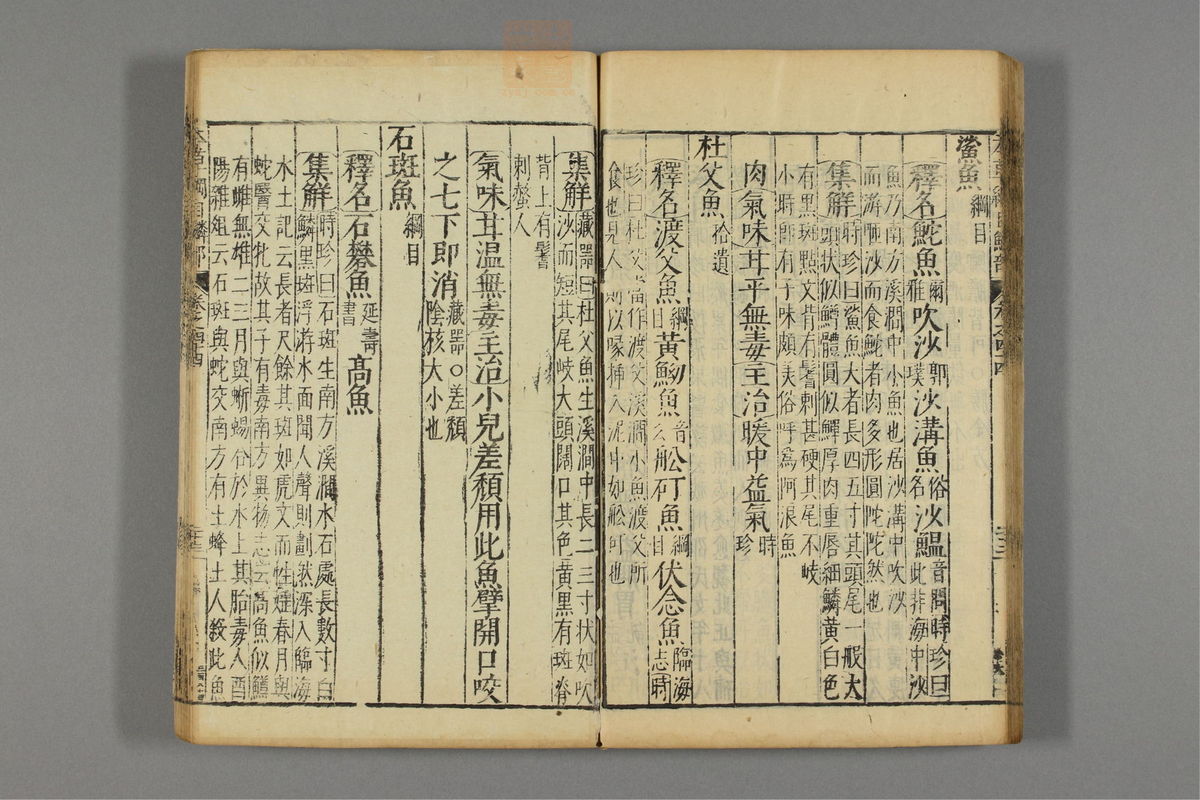 鯊魚綱目
釋名鮀魚爾雅吹沙郭璞沙溝魚俗名沙鰛音問時珍曰此非海中沙
魚乃南方溪澗中小魚也居沙溝中吹沙
而游咂沙而食鮀者肉多形圓陀陀然也
集解時珍曰鯊魚大者長四五寸其頭尾一般大頭狀似鱒體圓似鱓厚肉重唇細鱗黃白色
有黑斑點文背有鬐刺甚硬其尾不岐
小時即有子味頗美俗呼為阿浪魚
肉氣味甘平無毒主治暖中益氣時珍
杜父魚拾遺
釋名渡父魚綱目黃䱂魚音么舩矴魚綱目伏念魚臨海志時
珍曰杜父當作渡父溪澗小魚渡父所
食也見人則以喙插入泥中如舩矴也
集解藏器曰杜父魚生溪澗中長二三寸狀如吹沙而短其尾岐大頭闊口其色黃黑有斑脊
背上有鬐刺螫人
氣味甘溫無毒主治小兒差頹用此魚擘開口咬
之七下即消藏器○差頹陰核大小也
石斑魚綱目
釋名石礬魚延壽書高魚
集解時珍曰石斑生南方溪澗水石處長數寸白鱗黑斑浮游水面聞人聲則劃然深入臨海
水土記云長者尺餘其斑如虎文而性淫春月與
蛇醫交牝故其子有毒南方異物志云高魚似鱒
有雌無雄二三月與蜥蜴合於水上其胎毒人酉
陽雜俎云石斑與蛇交南方有土蜂土人殺此魚